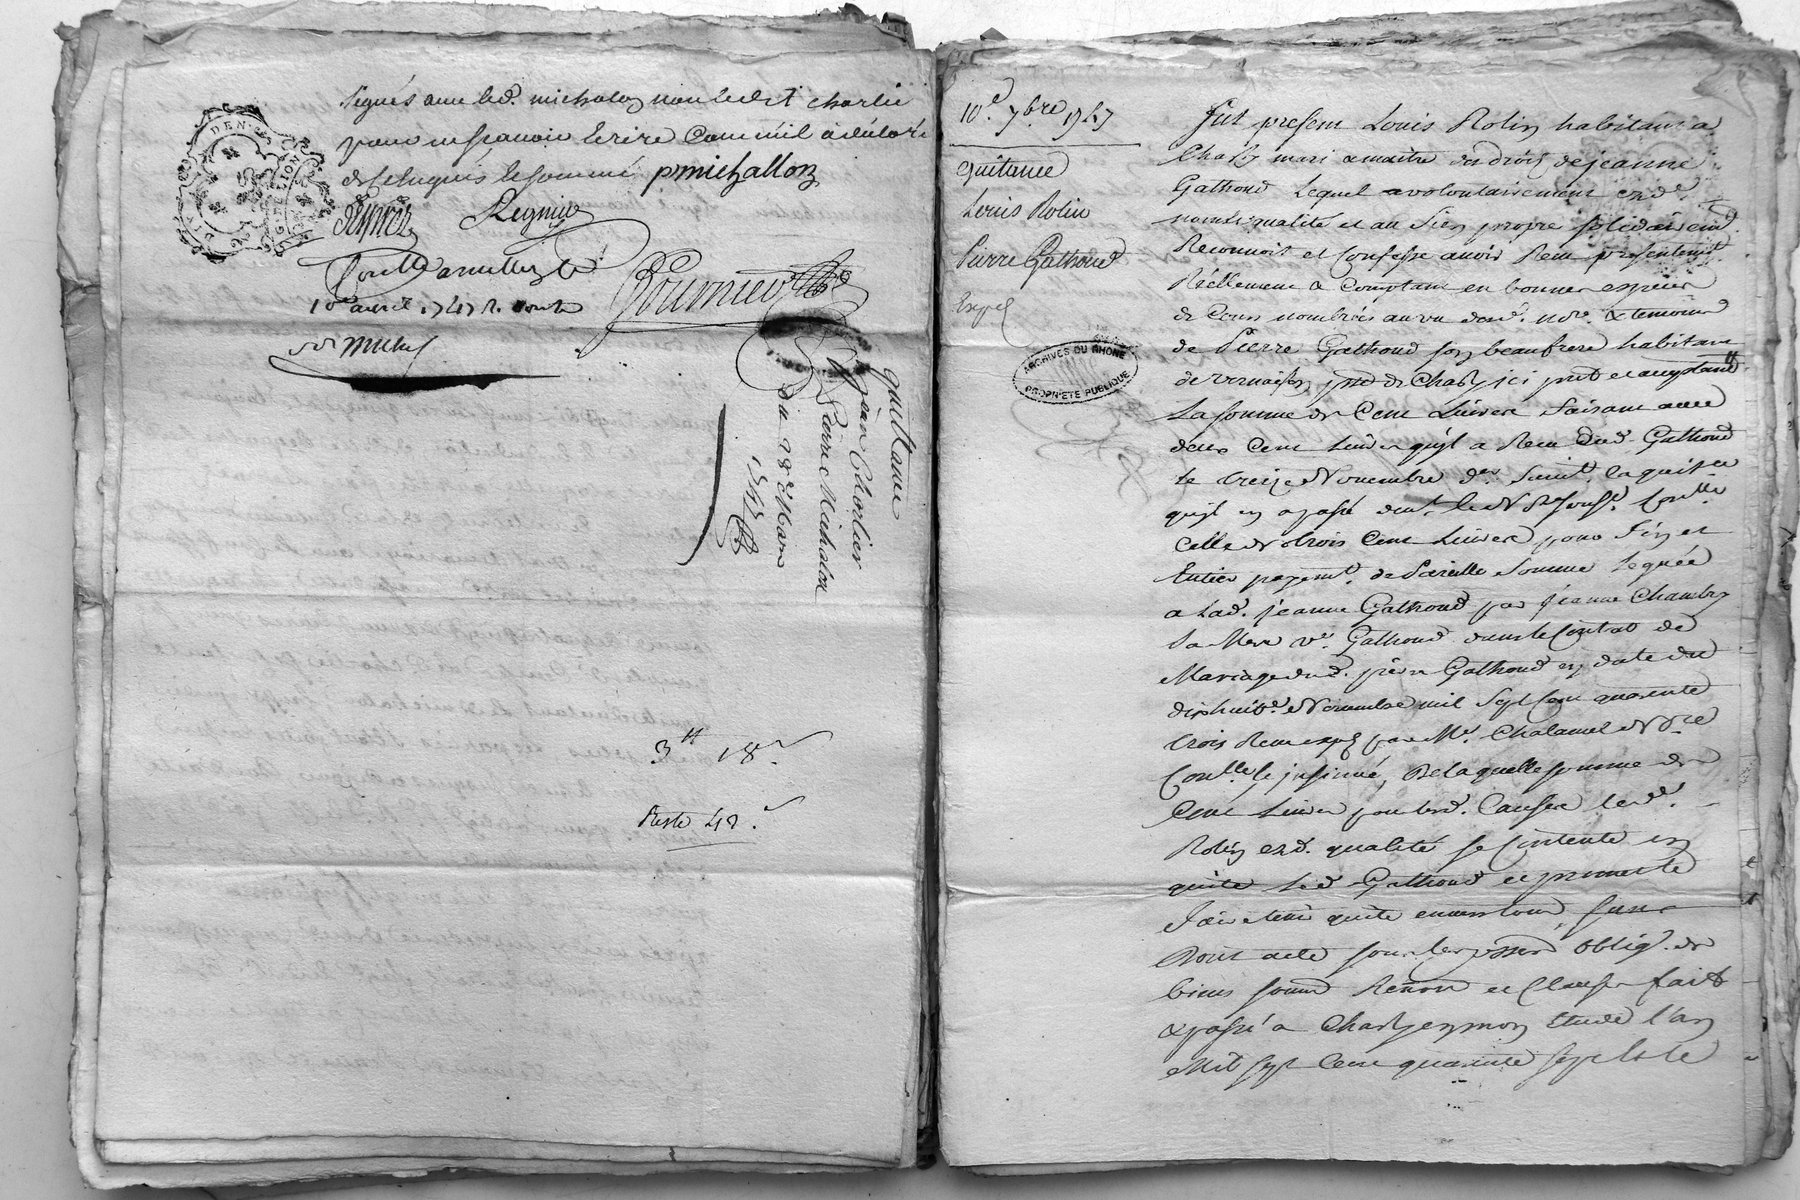 signés avec led. michalon non ledit charlie
pour ne scavoir Ecrire Comme il a déclaré
de ce enquis le sommé pmichallon
Despréz Regniez
10e avril 1747 R. douze
GENERATION
DE
quittance
jean Chorlier
Pierre Michalon
du 28e Mars
1747
3tt 18s
Reste 42s
10e 7bre 1747
Quitance
Louis Rolin
Pierre Gathoud
Expé
ARCHIVES DU RHONE
PROPRIETE PUBLIQUE
fut present Louis Rolin habitant a
Charly mari a maitre des droits de jeanne
Gathoud Lequel a volontairement end.
noms qualité et au sien propre solidairemt.
Reconnoit et Confesse avoir Receu presentemt.
Réellement a Comptant en bonnes especes
de Cours nombrées au vu desd. nore. & temoins
de Pierre Gathoud son beaufrere habitant
de vernaison psse de Charly ici pnt et acceptant
La somme de Cent Livres faisant avec
deux Cent Livres qu'il a Receu dud. Gathoud
le treize Novembre der
qu'il en a passé devt. le Nre soussé.
Celle de trois Cent Livres pour fin et
Entier payemt. de Pareille Somme Leguée
a Lad. jeanne Gathoud par jeanne Chambry
sa Mere ve. Gathoud dans le Contrat de
Mariage dud. pierre Gathoud en date du
dixhuite Novembre mil Sept Cent quarente
trois Receu exp par Me. Chalamel Nre
Conlle le insinué, De laquelle somme de
Cent Livres pour lesd. Causes led.
Rolin end. qualité se Contente en
quitte Led Gathoud et promet le
faire tenir quitte envers tous sans
Dont acte sous les pssess oblig. de
biens soumis Renon et Clauses fait
& passé a Charly en mon Etude l'an
Mil sept Cent quarante sept & le